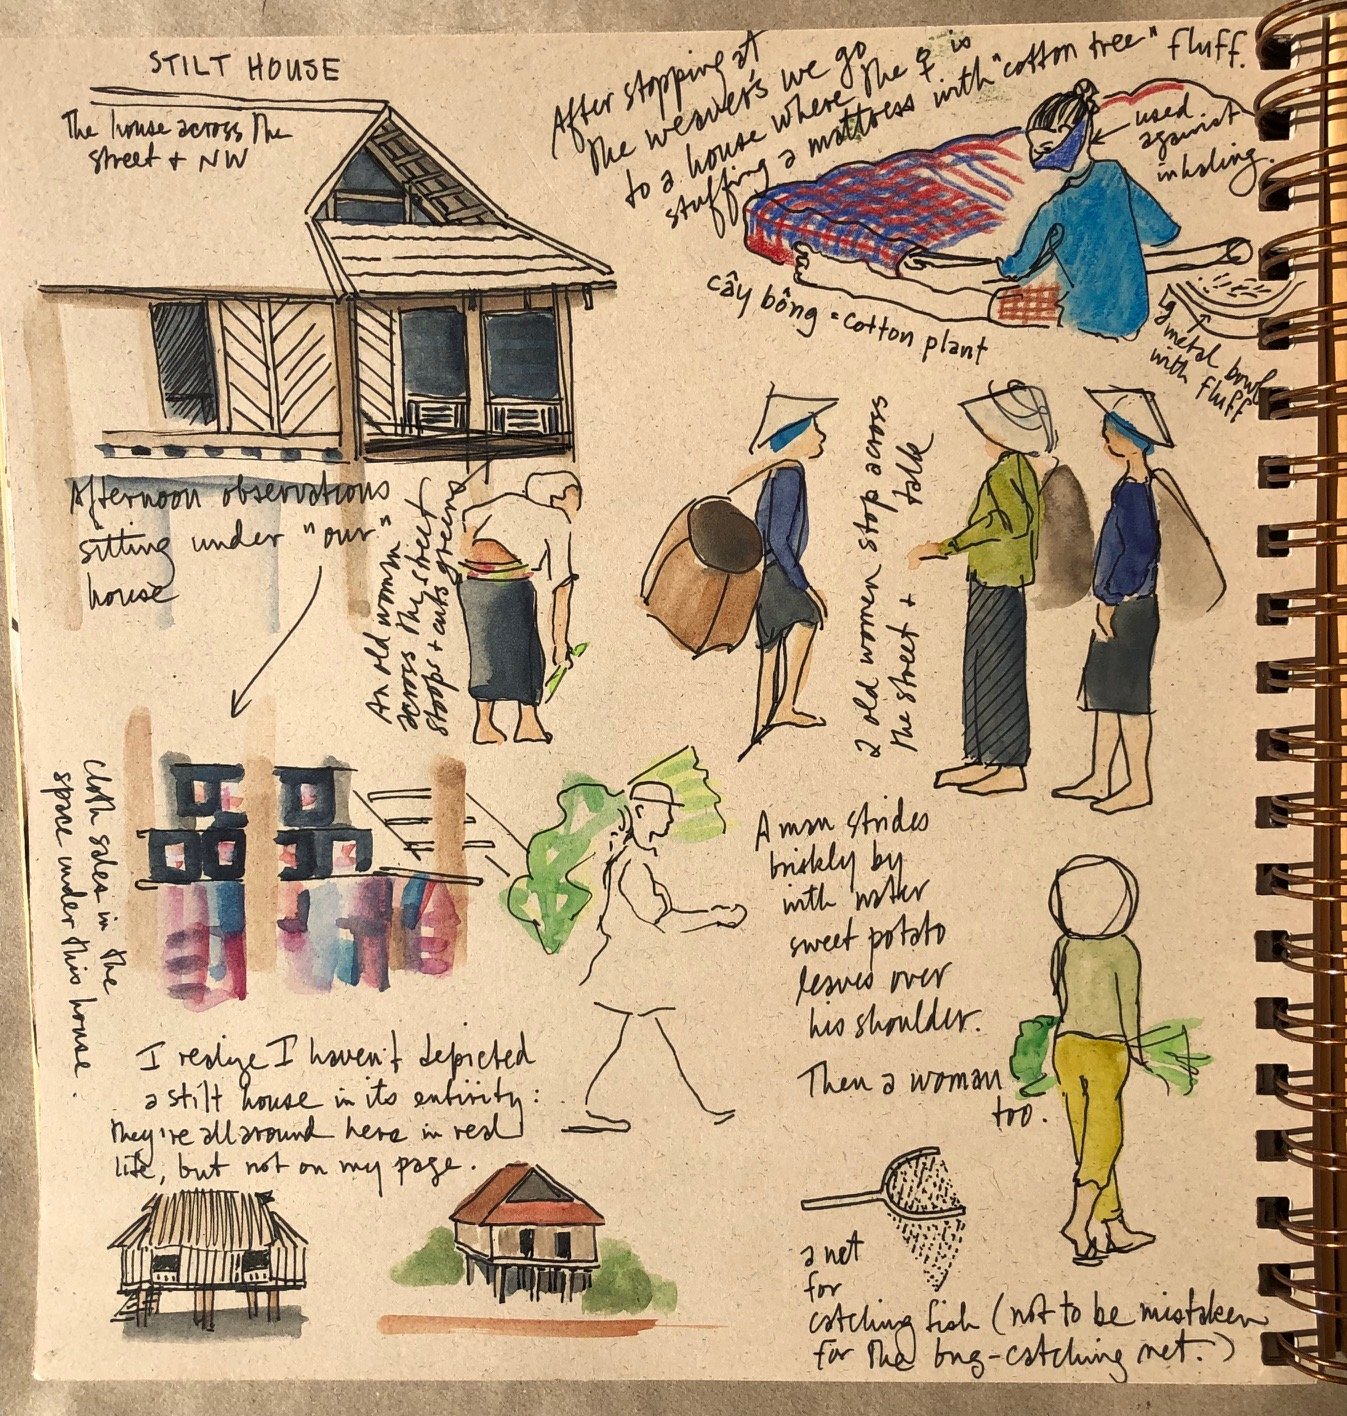 STILT HOUSE
The house across the
street & NW
After stopping at
the weavers we go
to a house where the ♀ is
stuffing a mattress with "cotton tree" fluff.
used
against
inhaling.
cây bông = cotton plant
metal bowl
with fluff
Afternoon observations
sitting under "our"
house
An old woman
across the street
stoops + cuts greens
2 old women stop across
the street + talk
cloth sales in the
space under this house.
A man strides
briskly by
with water
sweet potato
leaves over
his shoulder.
Then a woman
too.
I realize I haven't depicted
a stilt house in its entirity:
they're all around here in real
life, but not on my page.
a net
for
catching fish (not to be mistaken
for the bug-catching net.)